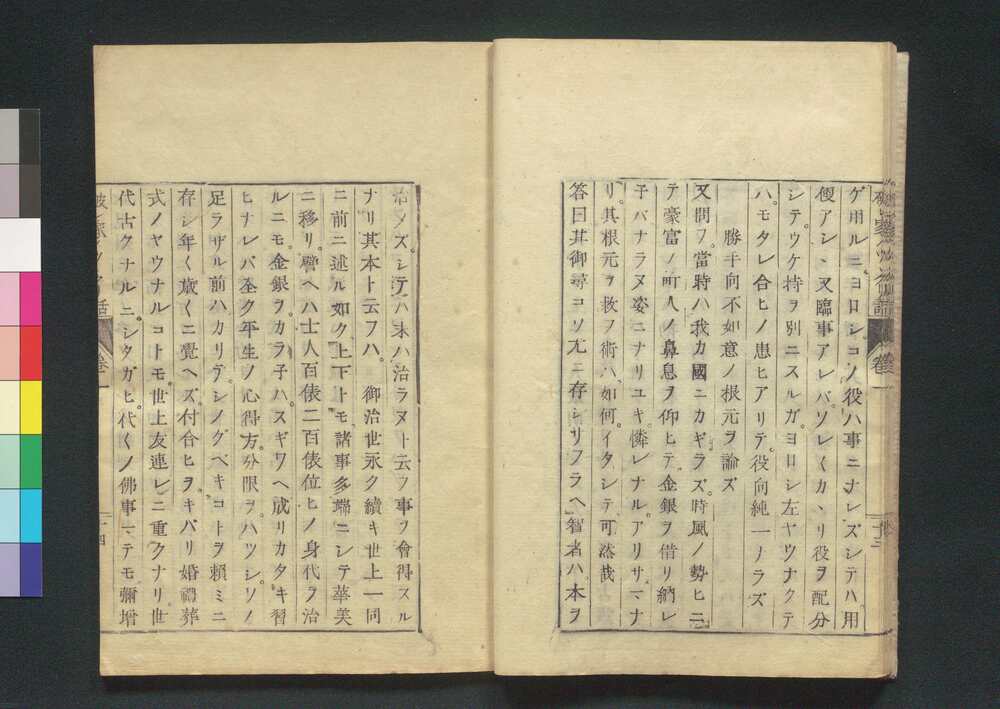 ゲ用ルニヨロシ。コノ役ハ事ニナレズシテハ。用
便アシヽ。又臨事アレバ。ソレ〱カヽリ役ヲ配分
シテ。ウケ持ヲ別ニスルガ。ヨロシ左ヤウナクテ
ハ。モタレ合ヒノ患ヒアリテ。役向純一ナラズ
勝手向不如意ノ根元ヲ論ズ
又問フ。當時ハ我カ國ニカギラズ。時風ノ勢ヒニ
テ豪富ノ町人ノ鼻息ヲ仰ヒテ。金銀ヲ借リ納レ
子バナラヌ姿ニナリユキ。憐レナルアリサマナ
リ。其根元ヲ救フ術ハ。如何。イタシテ可然哉
答曰其御尋コソ尤ニ存シサフラヘ。智者ハ本ヲ
治メズ。シテハ末ハ治ラヌト云フ事ヲ會得スル
ナリ其本ト云フハ。御治世永ク續キ世上一同
ニ前ニ述ル如ク。上下トモ諸事多端ニシテ華美
ニ移リ。譬ヘハ士人百俵二百俵位ヒノ身代ヲ治
ルニモ。金銀ヲカラ子ハスギワヘ成リカタキ習
ヒナレバ全ク平生ノ心得方。分限ヲ。ハツシソノ
足ラザル前ハカリデ。シノグベキコトヲ頼ミニ
存シ年〱歳〱ニ覺ヘズ。付合ヒヲ。キバリ婚禮葬
式ノヤウナルコトモ。世上友連レニ重クナリ世
代古クナルニ。シタガヒ。代〱ノ佛事マテモ彌增
卷一
十四